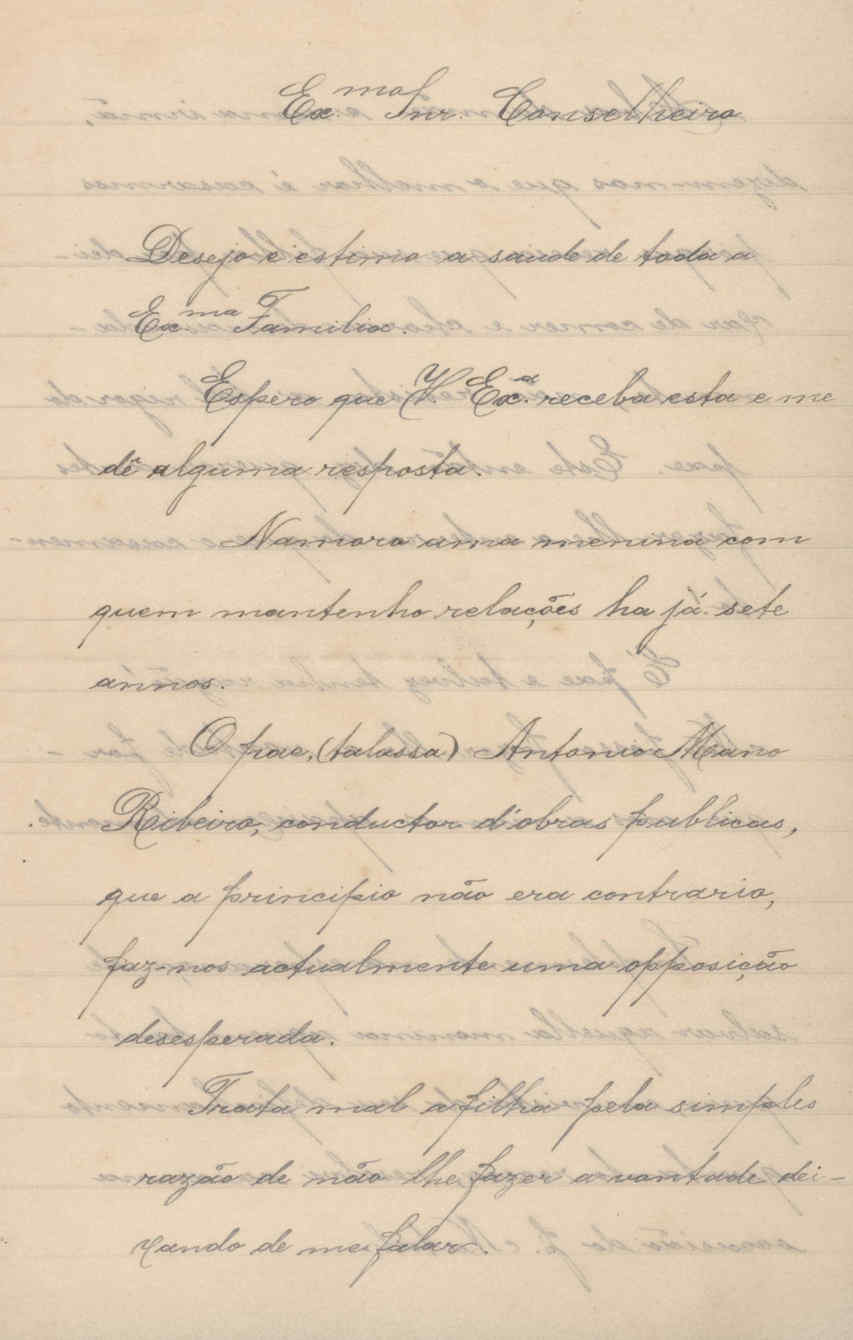 Ex.mo Snr. Conselheiro
Desejo e estimo a saude de toda a
Ex.ma Familia.
Espero que V. Ex.a receba esta e me
dê alguma resposta.
Namoro uma menina com
quem mantenho relações ha já sete
annos.
O pae, (talassa) Antonio Mano
Ribeiro, conductor d'obras publicas,
que a principio não era contrario,
faz-nos actualmente uma opposição
desesperada.
Trata mal a filha pela simples
razão de não lhe fazer a vontade dei-
xando de me falar.